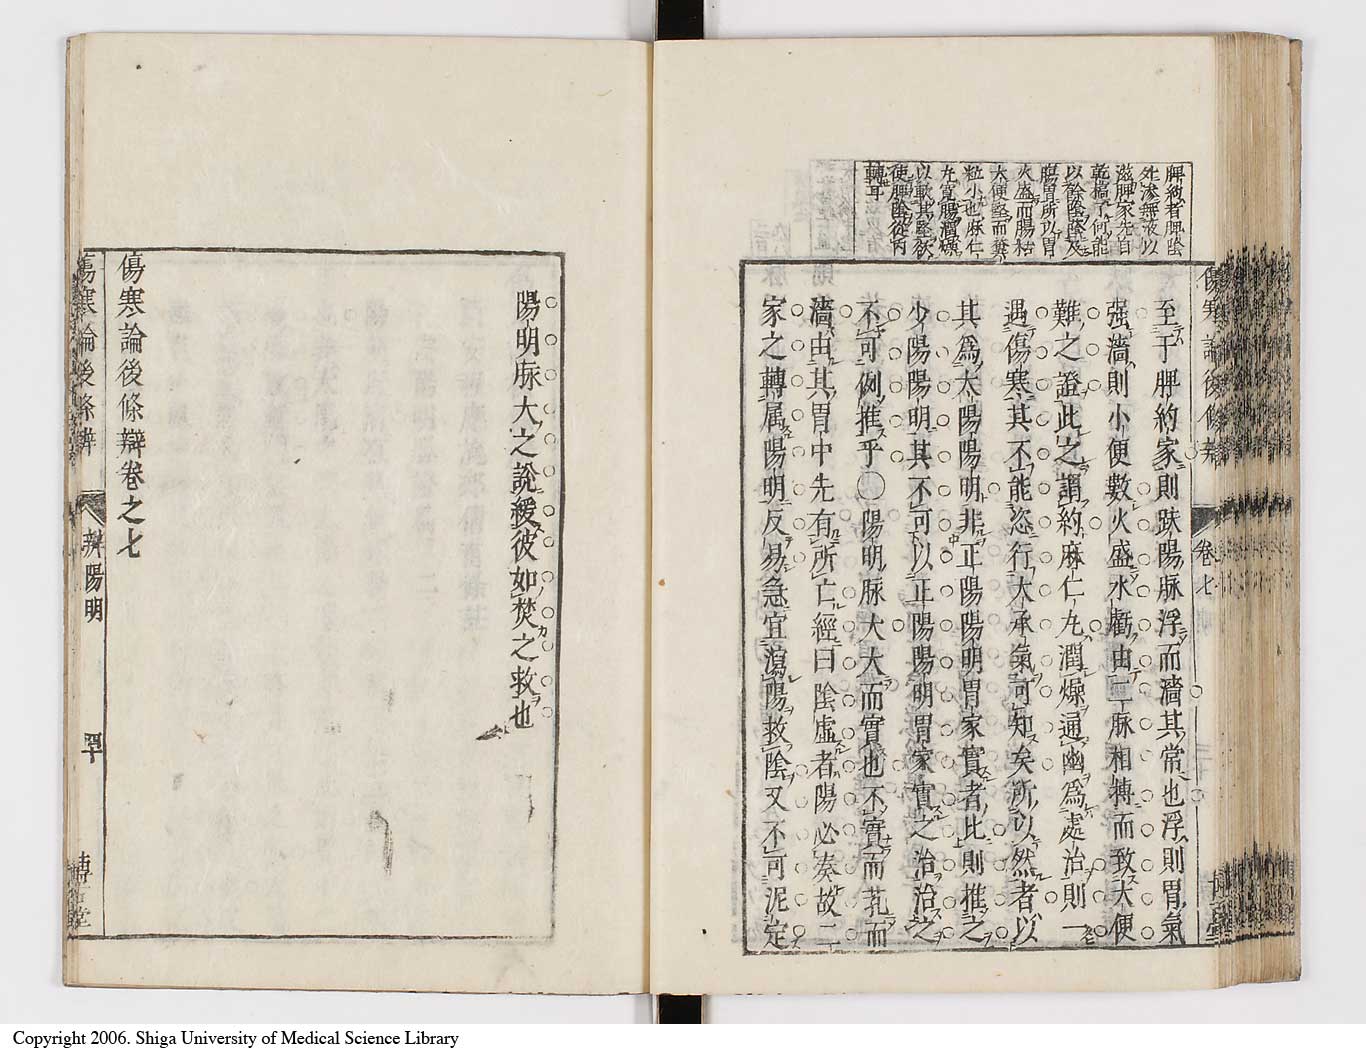 脾約者脾陰
外滲無液以
滋脾家先自
乾槁了何能
以餘陰蔭及
腸胃所以胃
火盛而腸枯
大便堅而糞
粒小也麻仁
丸寬腸潤燥
以軟其堅欲
使脾陰從內
轉耳
傷寒論後條辨
卷七
至于脾約家則趺陽脉浮而濇其常也浮則胃氣
强濇則小便數火盛水虧由二脉相搏而致大便
難之證此之謂約麻仁丸潤燥通幽為處治則一
遇傷寒其不能恣行大承氣可知矣所以然者以
其為太陽陽明非正陽陽明胃家實者比則推之
少陽陽明其不可以正陽陽明胃家實之治治之
不可例推乎〇陽明脉大大而實也不實而芤而
濇由其胃中先有所亡經曰陰虛者陽必湊故二
家之轉属陽明反易急宜瀉陽救陰又不可泥定
陽明脉大之說緩彼如焚之救也
傷寒論後條辯卷之七
傷寒論後條辨
辨陽明
四十
堂
Copyright 2006. Shiga University of Medical Science Library